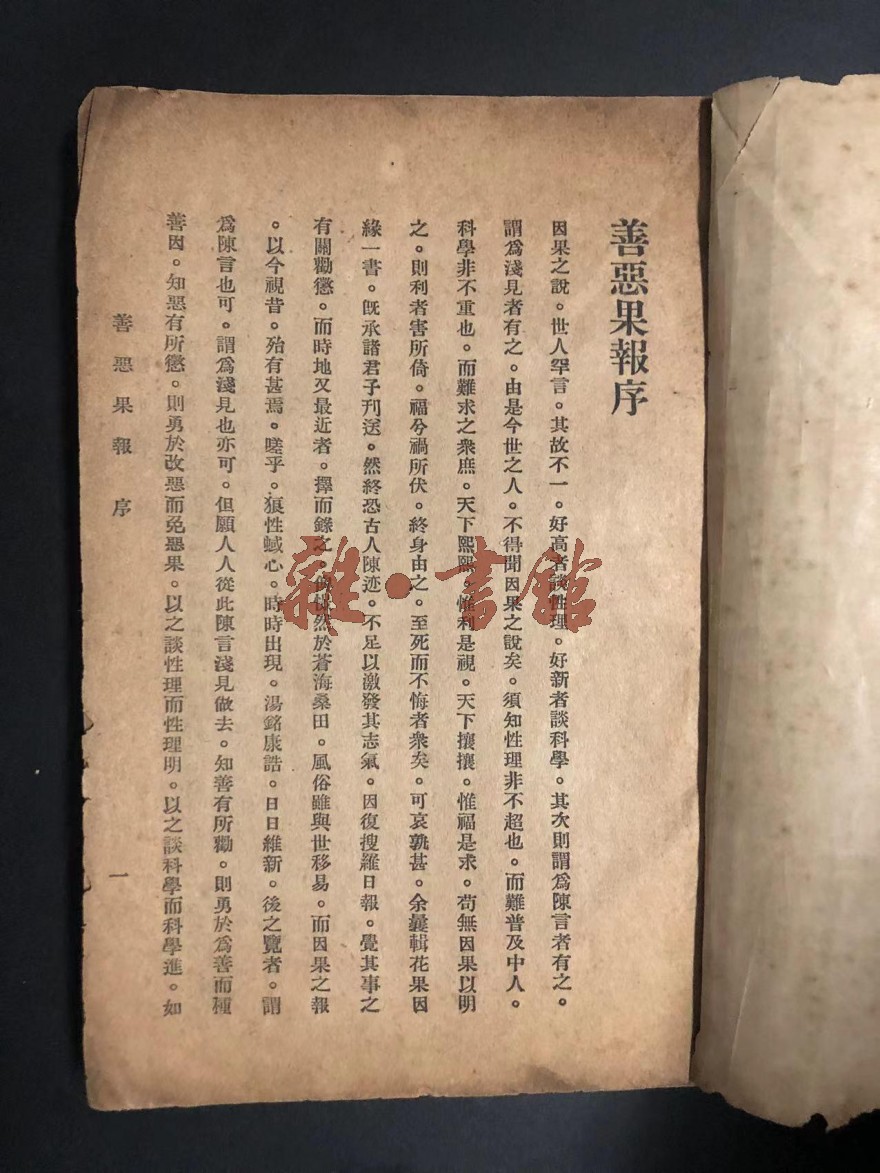 善惡果報序
因果之說。世人罕言。其故不一。好高者談性理。好新者談科學。其次則謂爲陳言者有之。
謂爲淺見者有之。由是今世之人。不得聞因果之說矣。須知性理非不超也。而難普及中人。
科學非不重也。而難求之衆庶。天下熙熙。惟利是視。天下攘攘。惟福是求。苟無因果以明
之。則利者害所倚。福兮禍所伏。終身由之。至死而不悔者衆矣。可哀孰甚。余曩輯花果因
緣一書。旣承諸君子刊送。然終恐古人陳迹。不足以激發其志氣。因復搜羅日報。覺其事之
有關勸懲。而時地又最近者。擇而錄之。然於蒼海桑田。風俗雖與世移易。而因果之報
。以今視昔。殆有甚焉。嗟乎。狼性蜮心。時時出現。湯銘康誥。日日維新。後之覽者。謂
爲陳言也可。謂爲淺見也亦可。但願人人從此陳言淺見做去。知善有所勸。則勇於爲善而種
善因。知惡有所懲。則勇於改惡而免惡果。以之談性理而性理明。以之談科學而科學進。如
善惡果報 序
一
雜·書館